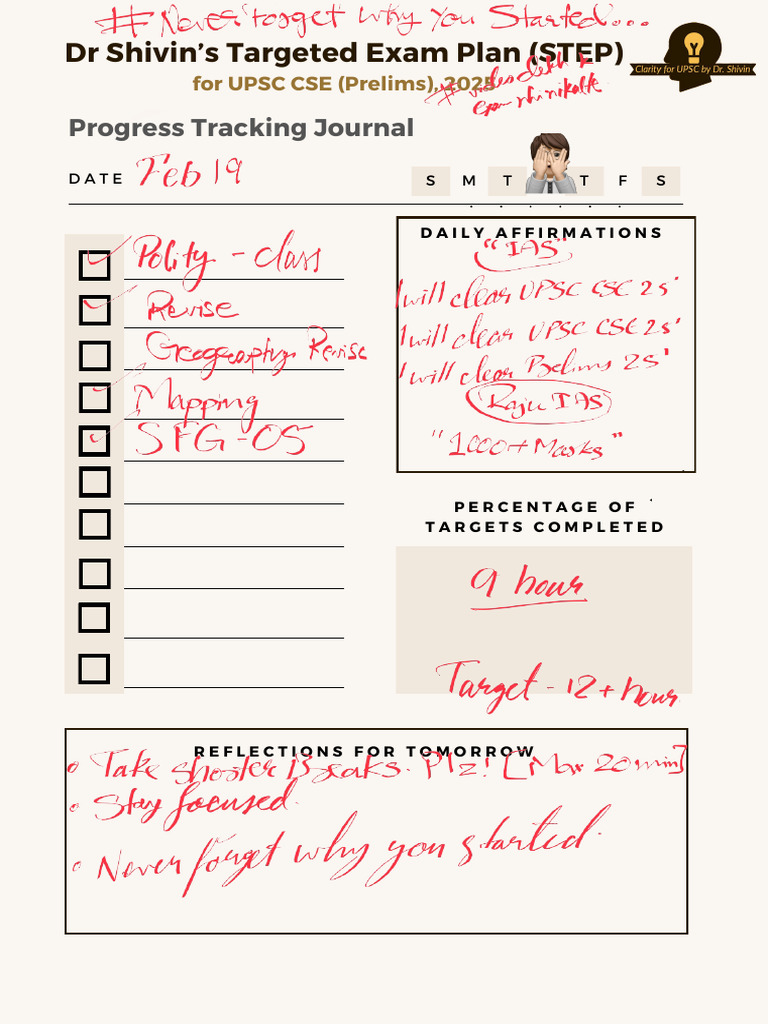 # Never forget why you Started...
Dr Shivin's Targeted Exam Plan (STEP)
Clarity for UPSC by Dr. Shivin
for UPSC CSE (Prelims), 2025
#
Progress Tracking Journal
DATE Feb 19
S M T T F S
DAILY AFFIRMATIONS
"IAS"
I will clear UPSC CSE 25'
I will clear UPSC CSE 25'
I will clear Prelims 25'
Raju IAS
"1000+ Marks"
Polity - Class
Revise
Geography Revise
Mapping
SFG-05
PERCENTAGE OF
TARGETS COMPLETED
9 hour
Target - 12+ hour
REFLECTIONS FOR TOMORROW
Take shorter Breaks. Plz! [Max 20 min]
Stay focused.
Never forget why you started.